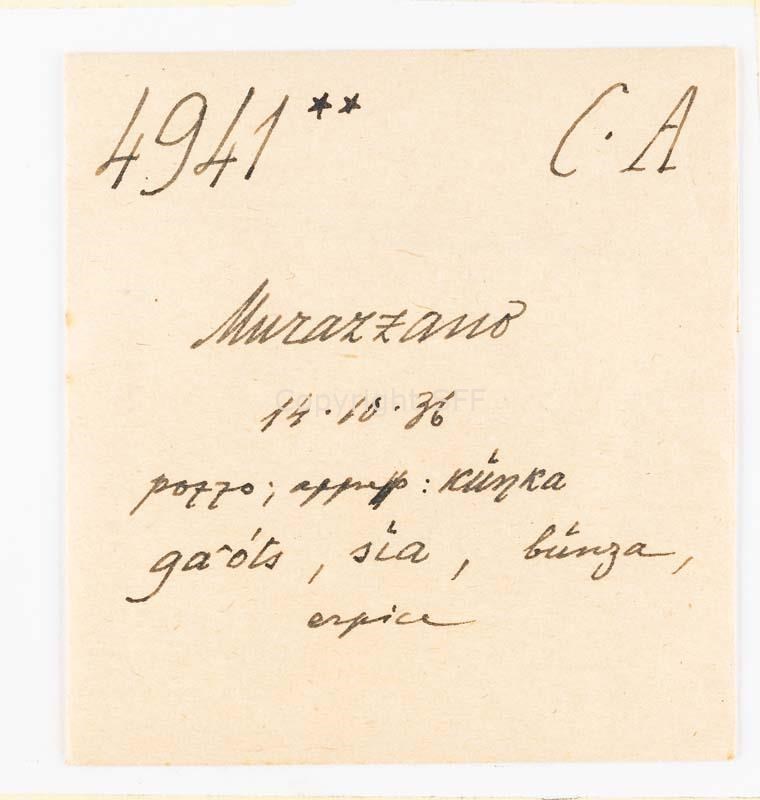 4941** C. A
Murazzano
14.10.36
pozzo; appress: küŋka
ga-óts, sía, búnza,
erpice
Copyright SFF